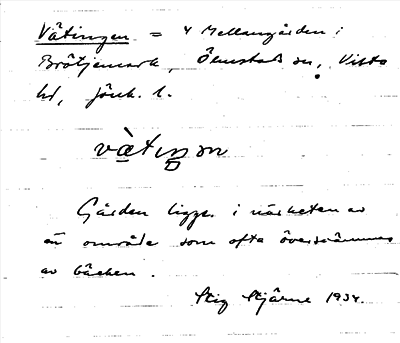 Vätingen = 4 Mellangården i
Brötjemark, Ölmstads sn, Vista
hd, Jönk. l.
vätiŋən
Gården ligger i närheten av
ett område som ofta översvämmas
av bäcken.
Stig Stjärne 1934.